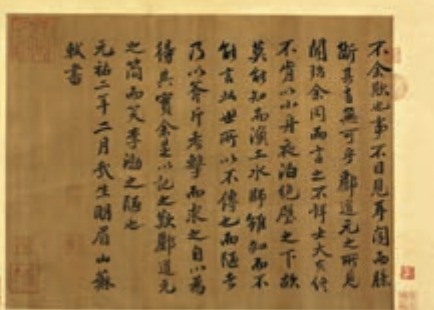 不余欺也事不目見耳聞而臆
斷其有無可乎酈道元之所見
聞殆余同而言之不詳士大夫終
不肯以小舟夜泊絕壁之下故
莫能知而漁工水師雖知而不
能言此世所以不傳也而陋者
乃以斧斤考擊而求之自以為
得其實余是以記之歎酈道元
之簡而笑李渤之陋也
元祐二年二月哉生明眉山蘇
軾書